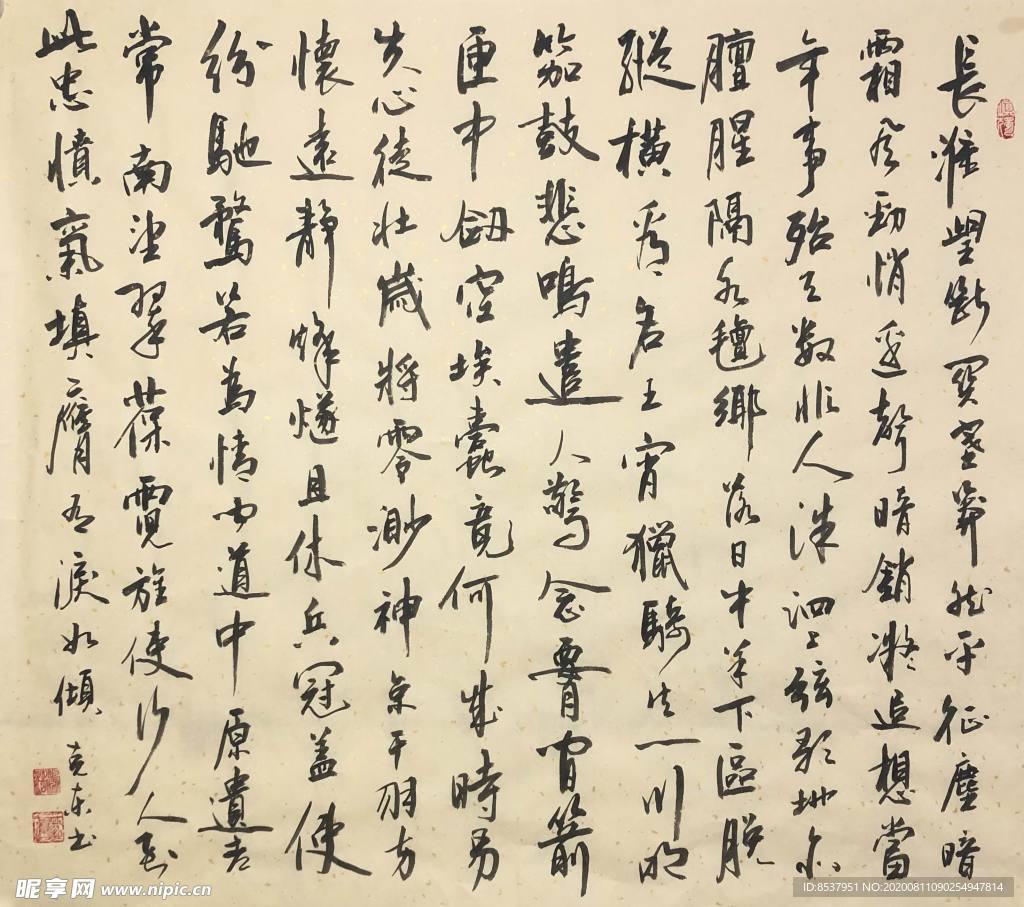 長淮望斷關塞莽然平征塵暗
霜風勁悄邊聲暗銷凝追想當
年事殆天數非人洙泗上絃歌地亦
膻腥隔水氈鄉落日牛羊下區脫
縱橫看名王宵獵騎火一川明
笳鼓悲鳴遣人驚念腰間箭
匣中劍空埃蠹竟何成時易
失心徒壯歲將零渺神京干羽方
懷遠靜烽燧且休兵冠蓋使
紛馳騖若為情聞道中原遺老
常南望翠葆霓旌使行人到
此忠憤氣填膺有淚如傾
克東書
昵享网 www.nipic.cn
ID:8537951 NO:20200811090254947814